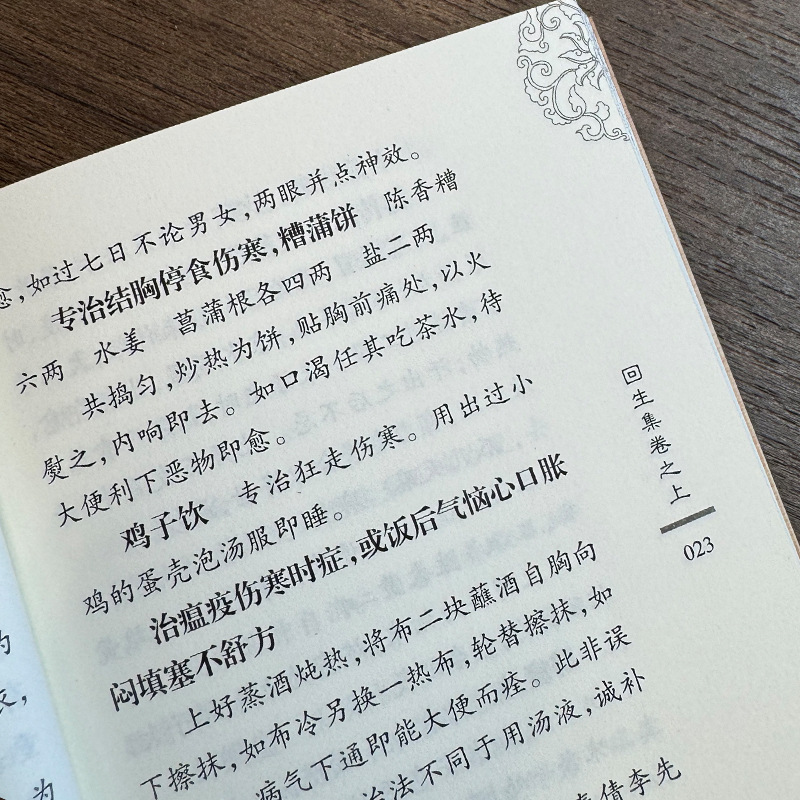 愈，如过七日不论男女，两眼并点神效。
专治结胸停食伤寒，糟蒲饼 陈香糟
六两 水姜 菖蒲根各四两 盐二两
共捣匀，炒热为饼，贴胸前痛处，以火
熨之，内响即去。如口渴任其吃茶水，待
大便利下恶物即愈。
鸡子饮 专治狂走伤寒。用出过小
鸡的蛋壳泡汤服即睡。
治瘟疫伤寒时症，或饭后气恼心口胀
闷填塞不舒方
上好蒸酒炖热，将布二块蘸酒自胸向
下擦抹，如布冷另换一热布，轮替擦抹，如
病气下通即能大便而痊。此非误
治法不同于用汤液，诚补
倩李先
回生集卷之上
023
为